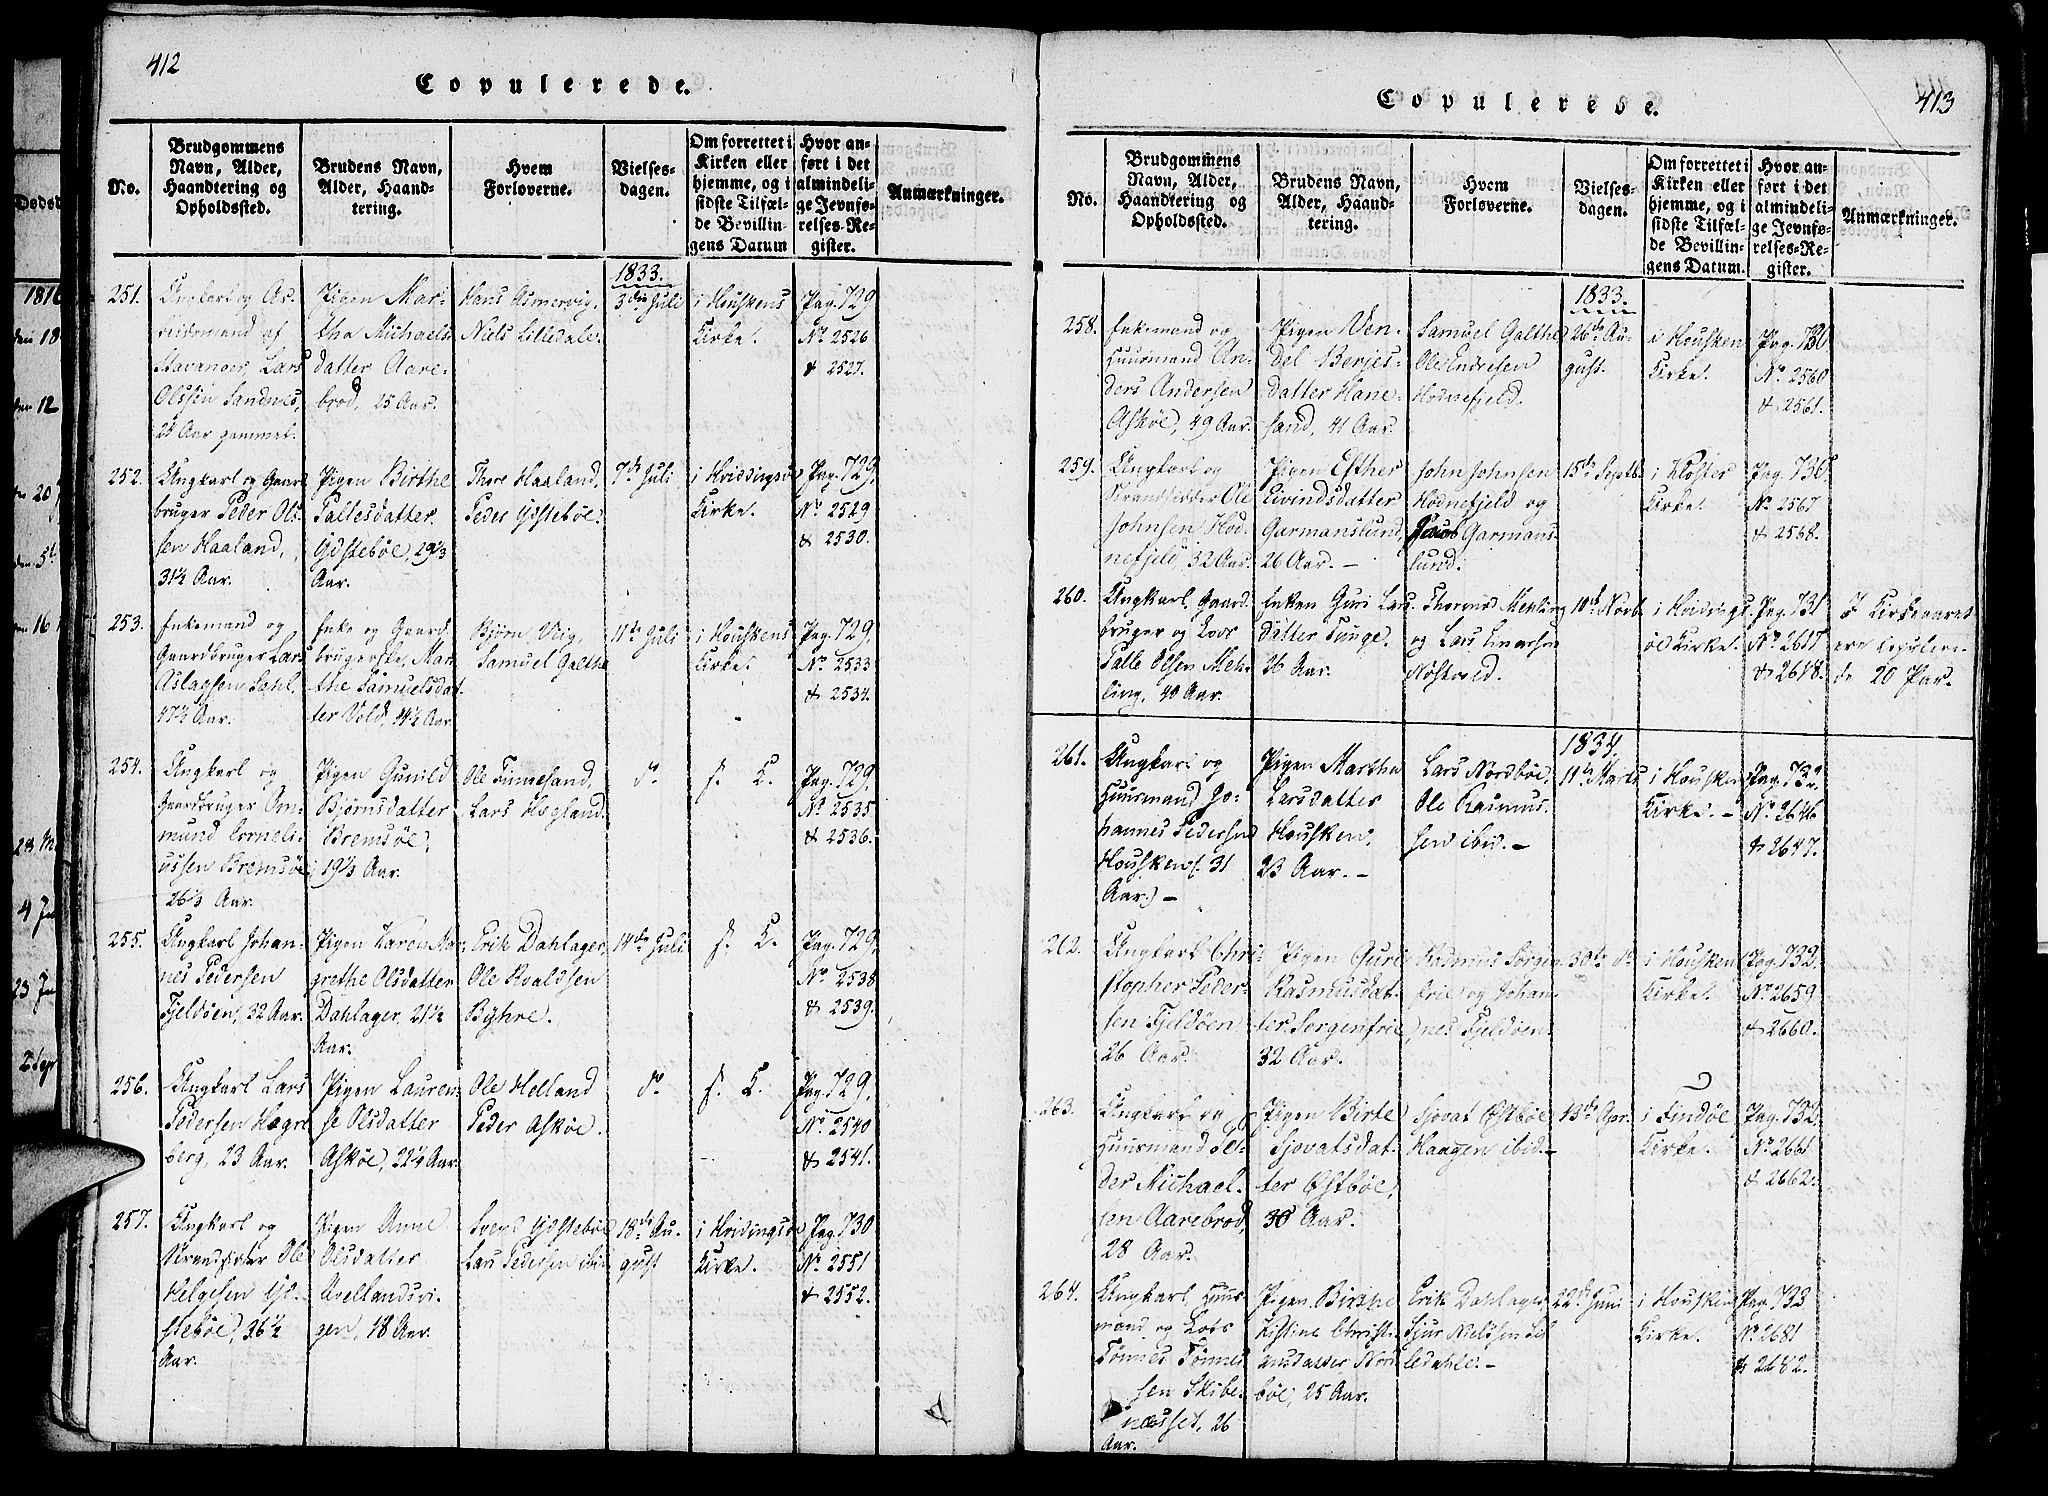 412
Copulerede.
No.
Brudgommens Navn, Alder, Haandtering og Opholdssted.
Brudens Navn, Alder, Haandtering.
Hvem Forloverne.
Vielsesdagen.
Om forrettet i Kirken eller hjemme, og i sidste Tilfælde Bevillingens Datum
Hvor anført i det almindelige Jevnførelses-Register.
Anmærkninger.
1833.
251.
Ungkarl og Arbeidsmand af Stavanger, Lars Olssen Sandnes, 25 Aar gammel.
Pigen Martha Michaelsdatter Aarebrod, 25 Aar.
Hans Asmervig, Niels Lilledale.
3die Juli
i Houskens Kirke.
Pag. 729
No. 2526
& 2527.
252.
Ungkarl og Gaardbruger Peder Olssen Haaland, 31½ Aar.
Pigen Birthe Pallesdatter Ydstebøe, 29⅓ Aar.
Thore Haaland, Peder Ydstebøe.
7de Juli
i Hvidingsøe Kirke.
Pag. 729.
No. 2529
& 2530.
253.
Enkemand og Gaardbruger Lars Aslagsen Sahl, 47½ Aar.
Enke og Gaardbrugerske, Marthe Samuelsdatter Vold, 41½ Aar
Bjørn Viig, Samuel Galthe
11te Juli
i Houskens Kirke.
Pag. 729.
No. 2533
& 2534.
254.
Ungkarl og Gaardbruger Ommund Corneliussen Bremsøe 26⅓ Aar.
Pigen Gunild Bjørnsdatter Bremsøe, 19⅓ Aar.
Ole Finnesand, Lars Hogland.
do
s. K.
Pag. 729.
No. 2535
& 2536.
255.
Ungkarl Johannes Pedersen Fjeldøen, 32 Aar.
Pigen Karen Margrethe Olsdatter Dahlager, 21½ Aar.
Erik Dahlager, Ole Roaldsen Byhre.
14de Juli
s. K.
Pag. 729.
No. 2538
& 2539.
256.
Ungkarl Lars Pedersen Hagreberg, 23 Aar.
Pigen Laurense Olsdatter Askøe, 32¼ Aar.
Ole Helland Peder Askøe.
do
s. K.
Pag. 729.
No. 2540
& 2541.
257.
Ungkarl og Strandsidder Ole Helgesen Ydstebøe, 36½ Aar.
Pigen Anne Olsdatter Qvellandsvigen, 18 Aar.
Svend Ydstebøe Lars Pedersen ibid
18de August
i Hvidingsøe Kirke.
Pag. 730
No. 2551
& 2552.
413
Copulerede.
No.
Brudgommens Navn, Alder, Haandtering og Opholdssted.
Brudens Navn, Alder, Haandtering.
Hvem Forloverne.
Vielsesdagen.
Om forrettet i Kirken eller hjemme, og i sidste Tilfælde Bevillingens Datum.
Hvor anført i det almindelige Jevnførelses-Register.
Anmærkninger.
1833.
258.
Enkemand og Huusmand Anders Andersen Askøe, 49 Aar.
Pigen Vendel Borjesdatter Hanesand, 41 Aar.
Samuel Galthe Ole Endresen Hodnefjeld.
26de August.
i Housken Kirke.
Pag. 730
No. 2560
& 2561.
259.
Ungkarl og Strandsidder Ole Johnsen Hodnefjeld, 32 Aar.
Pigen Esther Eivindsdatter Garmanslund, 26 Aar. —
John Johnsen Hodnefjeld og Garmanslund.
15de Septb.
i Kloster Kirke.
Pag. 730.
No. 2567
& 2568.
260.
Ungkarl, Gaardbruger og Lods Palle Olsen Mehling, 40 Aar.
Enken Guri Larsdatter Tunge. 26 Aar.
Thormod Mehling og Lars Einarsen Nostvold.
10de Novb
i Hvidingsøe Kirke.
Pag. 731
No. 2617
& 2618.
I Kirkeaaret ere Copulerede 20 Par.
1834.
261.
Ungkarl og Huusmand Johannes Pedersen Housken (31 Aar.) —
Pigen Martha Larsdatter Housken, 23 Aar. —
Lars Nordbøe, Ole Rasmussen ibid. —
11te Marts
i Housken Kirke. —
Pag. 732.
No. 2646
& 2647.
262.
Ungkarl Christopher Pedersen Fjeldøen 26 Aar.
Pigen Guri Rasmusdatter Sorgenfrie, 32 Aar.
Rasmus Sorgenfrie og Johannes Fjeldøen
30te do
i Housken Kirke.
Pag. 732.
No. 2659
& 2660.
263.
Ungkarl og Huusmand Peder Michaelsen Aarebrod, 28 Aar.
Pigen Birte Sjovatsdatter Østbøe, 30 Aar.
Sjovat Østbøe Haagen ibid. —
13de Apr.
i Findøe Kirke.
Pag. 732.
No. 2661
& 2662.
264.
Ungkarl, Huusmand og Lots Tønnes Tønnessen Skibenæsset, 26 Aar.
Pigen Birthe Kistine Christiansdatter Nordbøe, 25 Aar.
Erik Dahlager, Sjur Nielssen Lilledahle. —
22de Juni
i Housken Kirke.
Pag. 733
No. 2681
& 2682.